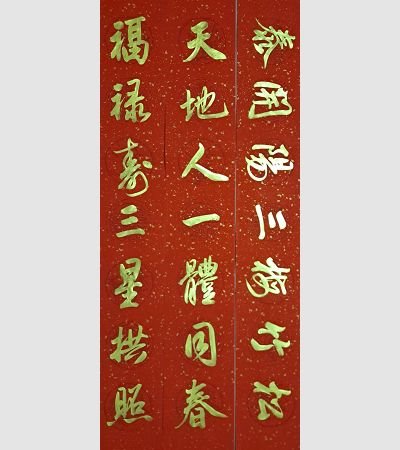 松竹梅三陽開泰
天地人一體同春
福禄寿三星拱照